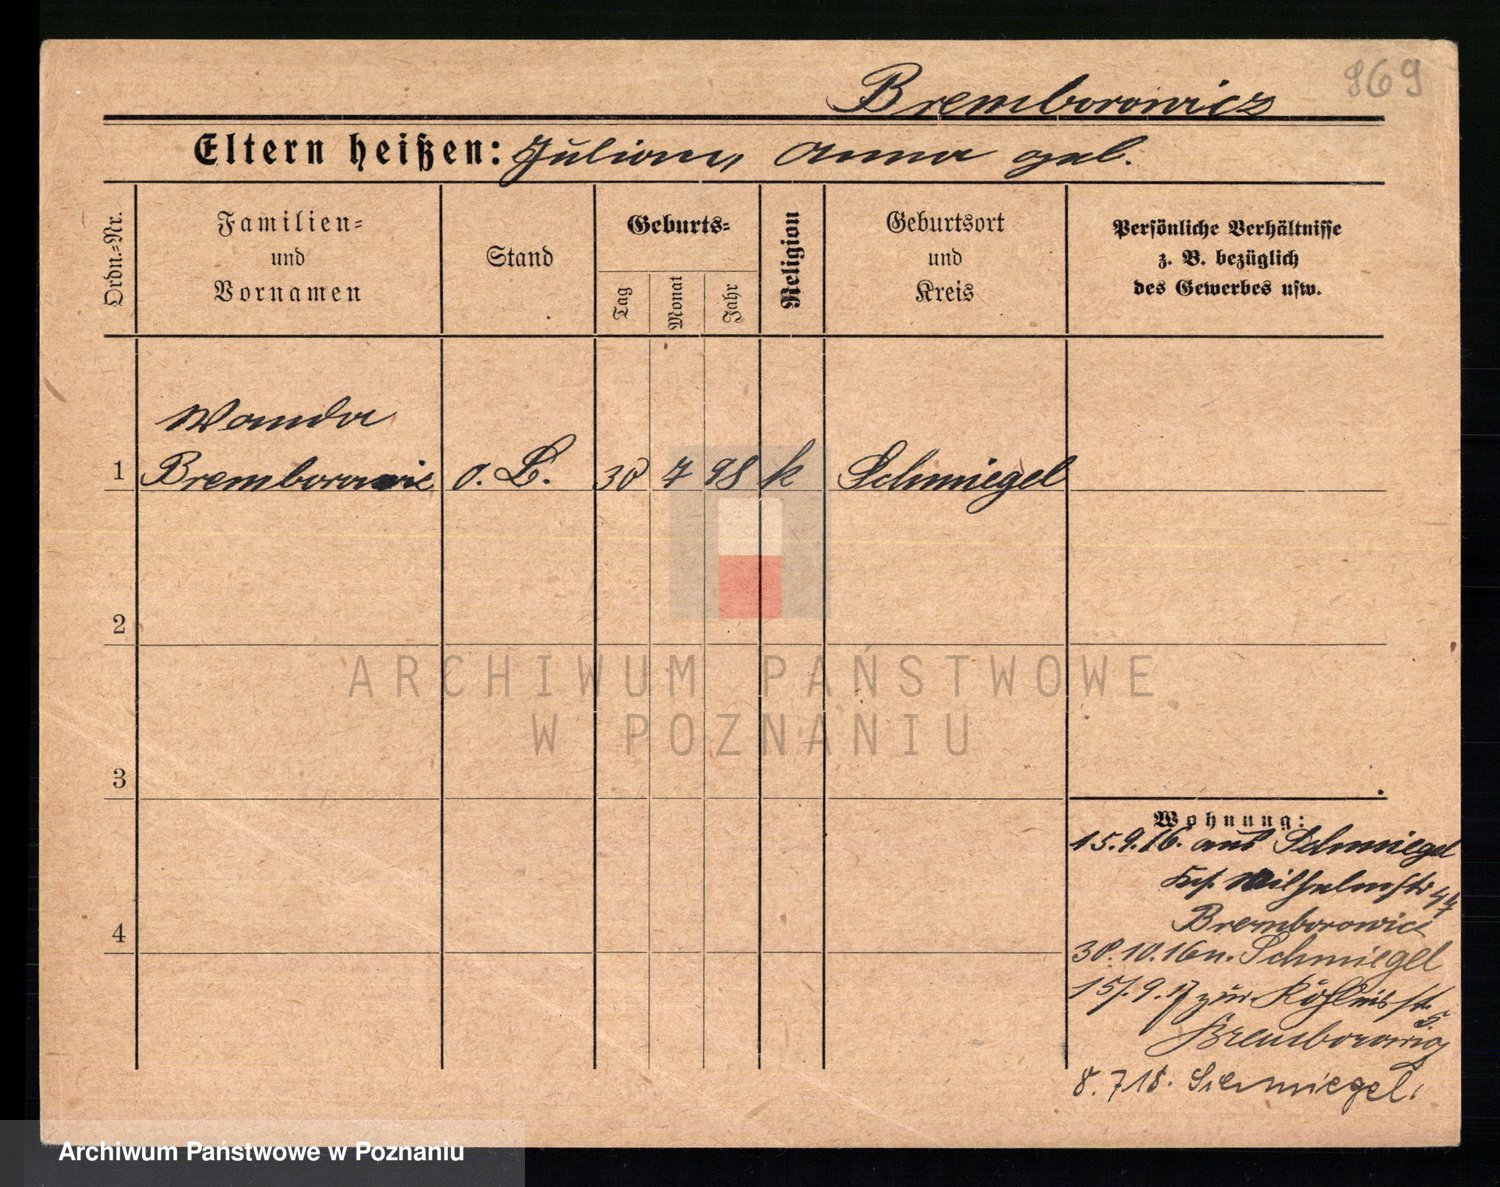 969
Bremborowicz
Eltern heißen: Julian, Anna geb.
Ordn.=Nr.
Familien= und Vornamen
Stand
Geburts=
Tag
Monat
Jahr
Religion
Geburtsort und Kreis
Persönliche Verhältnisse z. B. bezüglich des Gewerbes usw.
Wanda
1 Bremborowic o. B. 30 7 98 k Schmiegel
2
3
4
Wohnung:
15.9.16. aus Schmiegel
Wilhelmstr 44
Bremborowicz
30.10.16 n. Schmiegel
15/.9.17 zur. st. 5.
Bremborowicz
8.7 18. Schmiegel.
ARCHIWUM PAŃSTWOWE
W POZNANIU
Archiwum Państwowe w Poznaniu